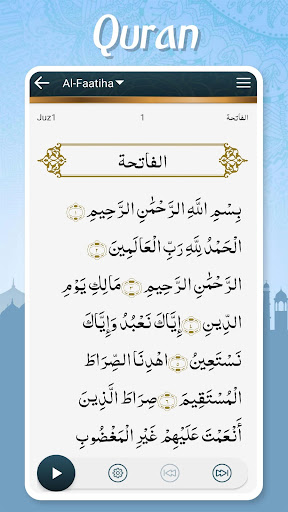 Quran
Al-Faatiha
Juz1 1 الفاتحة
الفاتحة
بِسْمِ اللَّهِ الرَّحْمَٰنِ الرَّحِيمِ ۝١
الْحَمْدُ لِلَّهِ رَبِّ الْعَالَمِينَ ۝٢
الرَّحْمَٰنِ الرَّحِيمِ ۝٣ مَالِكِ يَوْمِ
الدِّينِ ۝٤ إِيَّاكَ نَعْبُدُ وَإِيَّاكَ
نَسْتَعِينُ ۝٥ اهْدِنَا الصِّرَاطَ
الْمُسْتَقِيمَ ۝٦ صِرَاطَ الَّذِينَ
أَنْعَمْتَ عَلَيْهِمْ غَيْرِ الْمَغْضُوبِ